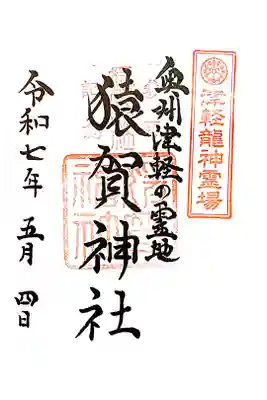 津軽龍神霊場
奥州津軽の霊地
猿賀神社
令和七年 五月 四日